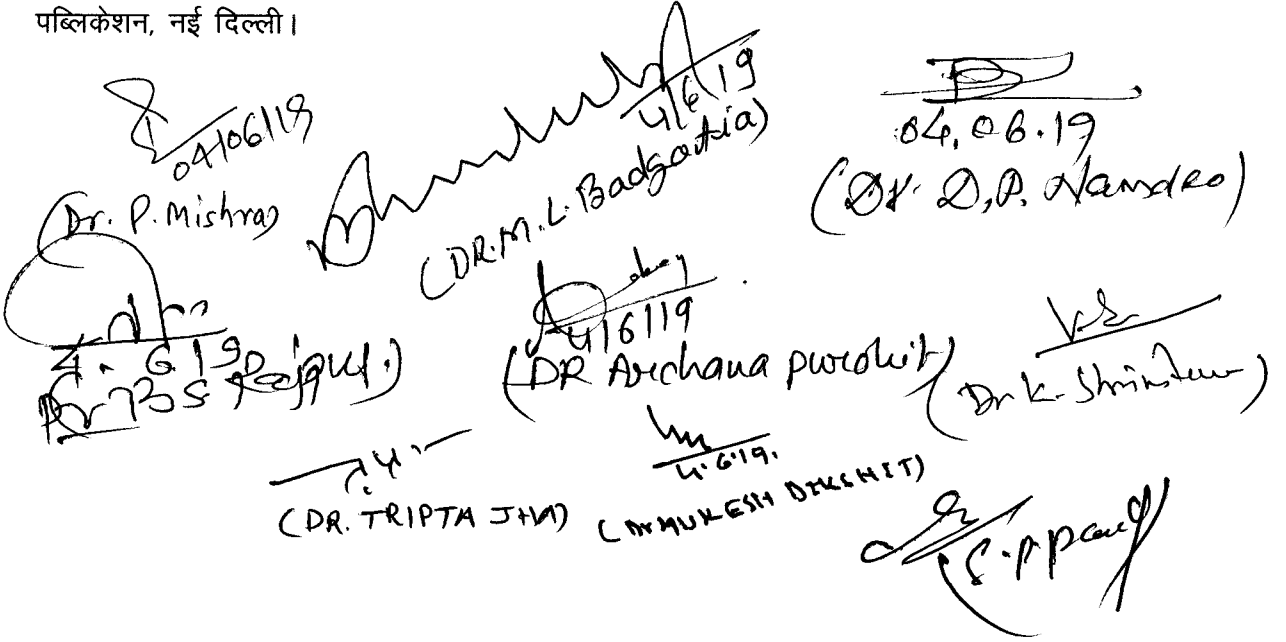 पब्लिकेशन, नई दिल्ली।
04/06/19
(Dr. P. Mishra)
4/6/19
(DR. M. L. Badgotia)
04.06.19
(Dr. D.P. Namdeo)
4.6.19
Dr B S Rajput.)
4/6/19
(DR Archana purohit)
(Dr K.
(DR. TRIPTA JHA)
4.6.19.
(Dr MUKESH DIKSHIT)